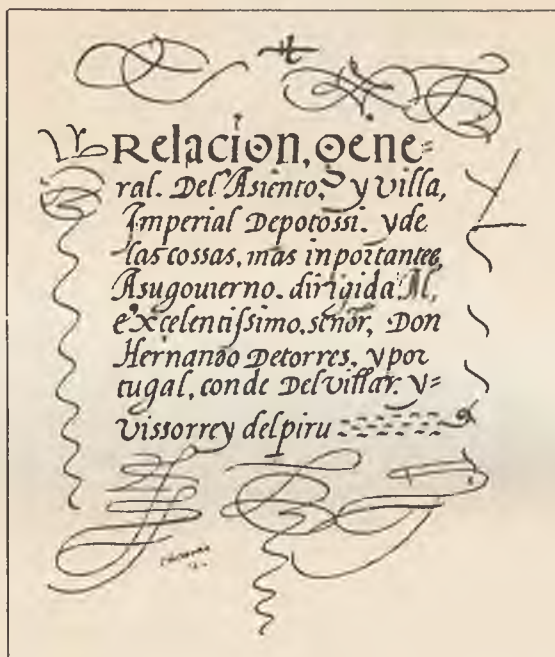 Relacion, gene=
ral. Del Asiento, y villa,
Imperial Depotossi. yde
las cossas, mas inportantes,
Asugouierno. dirigida Al,
excelentissimo, señor, Don
Hernando Detorres, ypor
tugal, conde Delvillar. y=
vissorrey delpiru